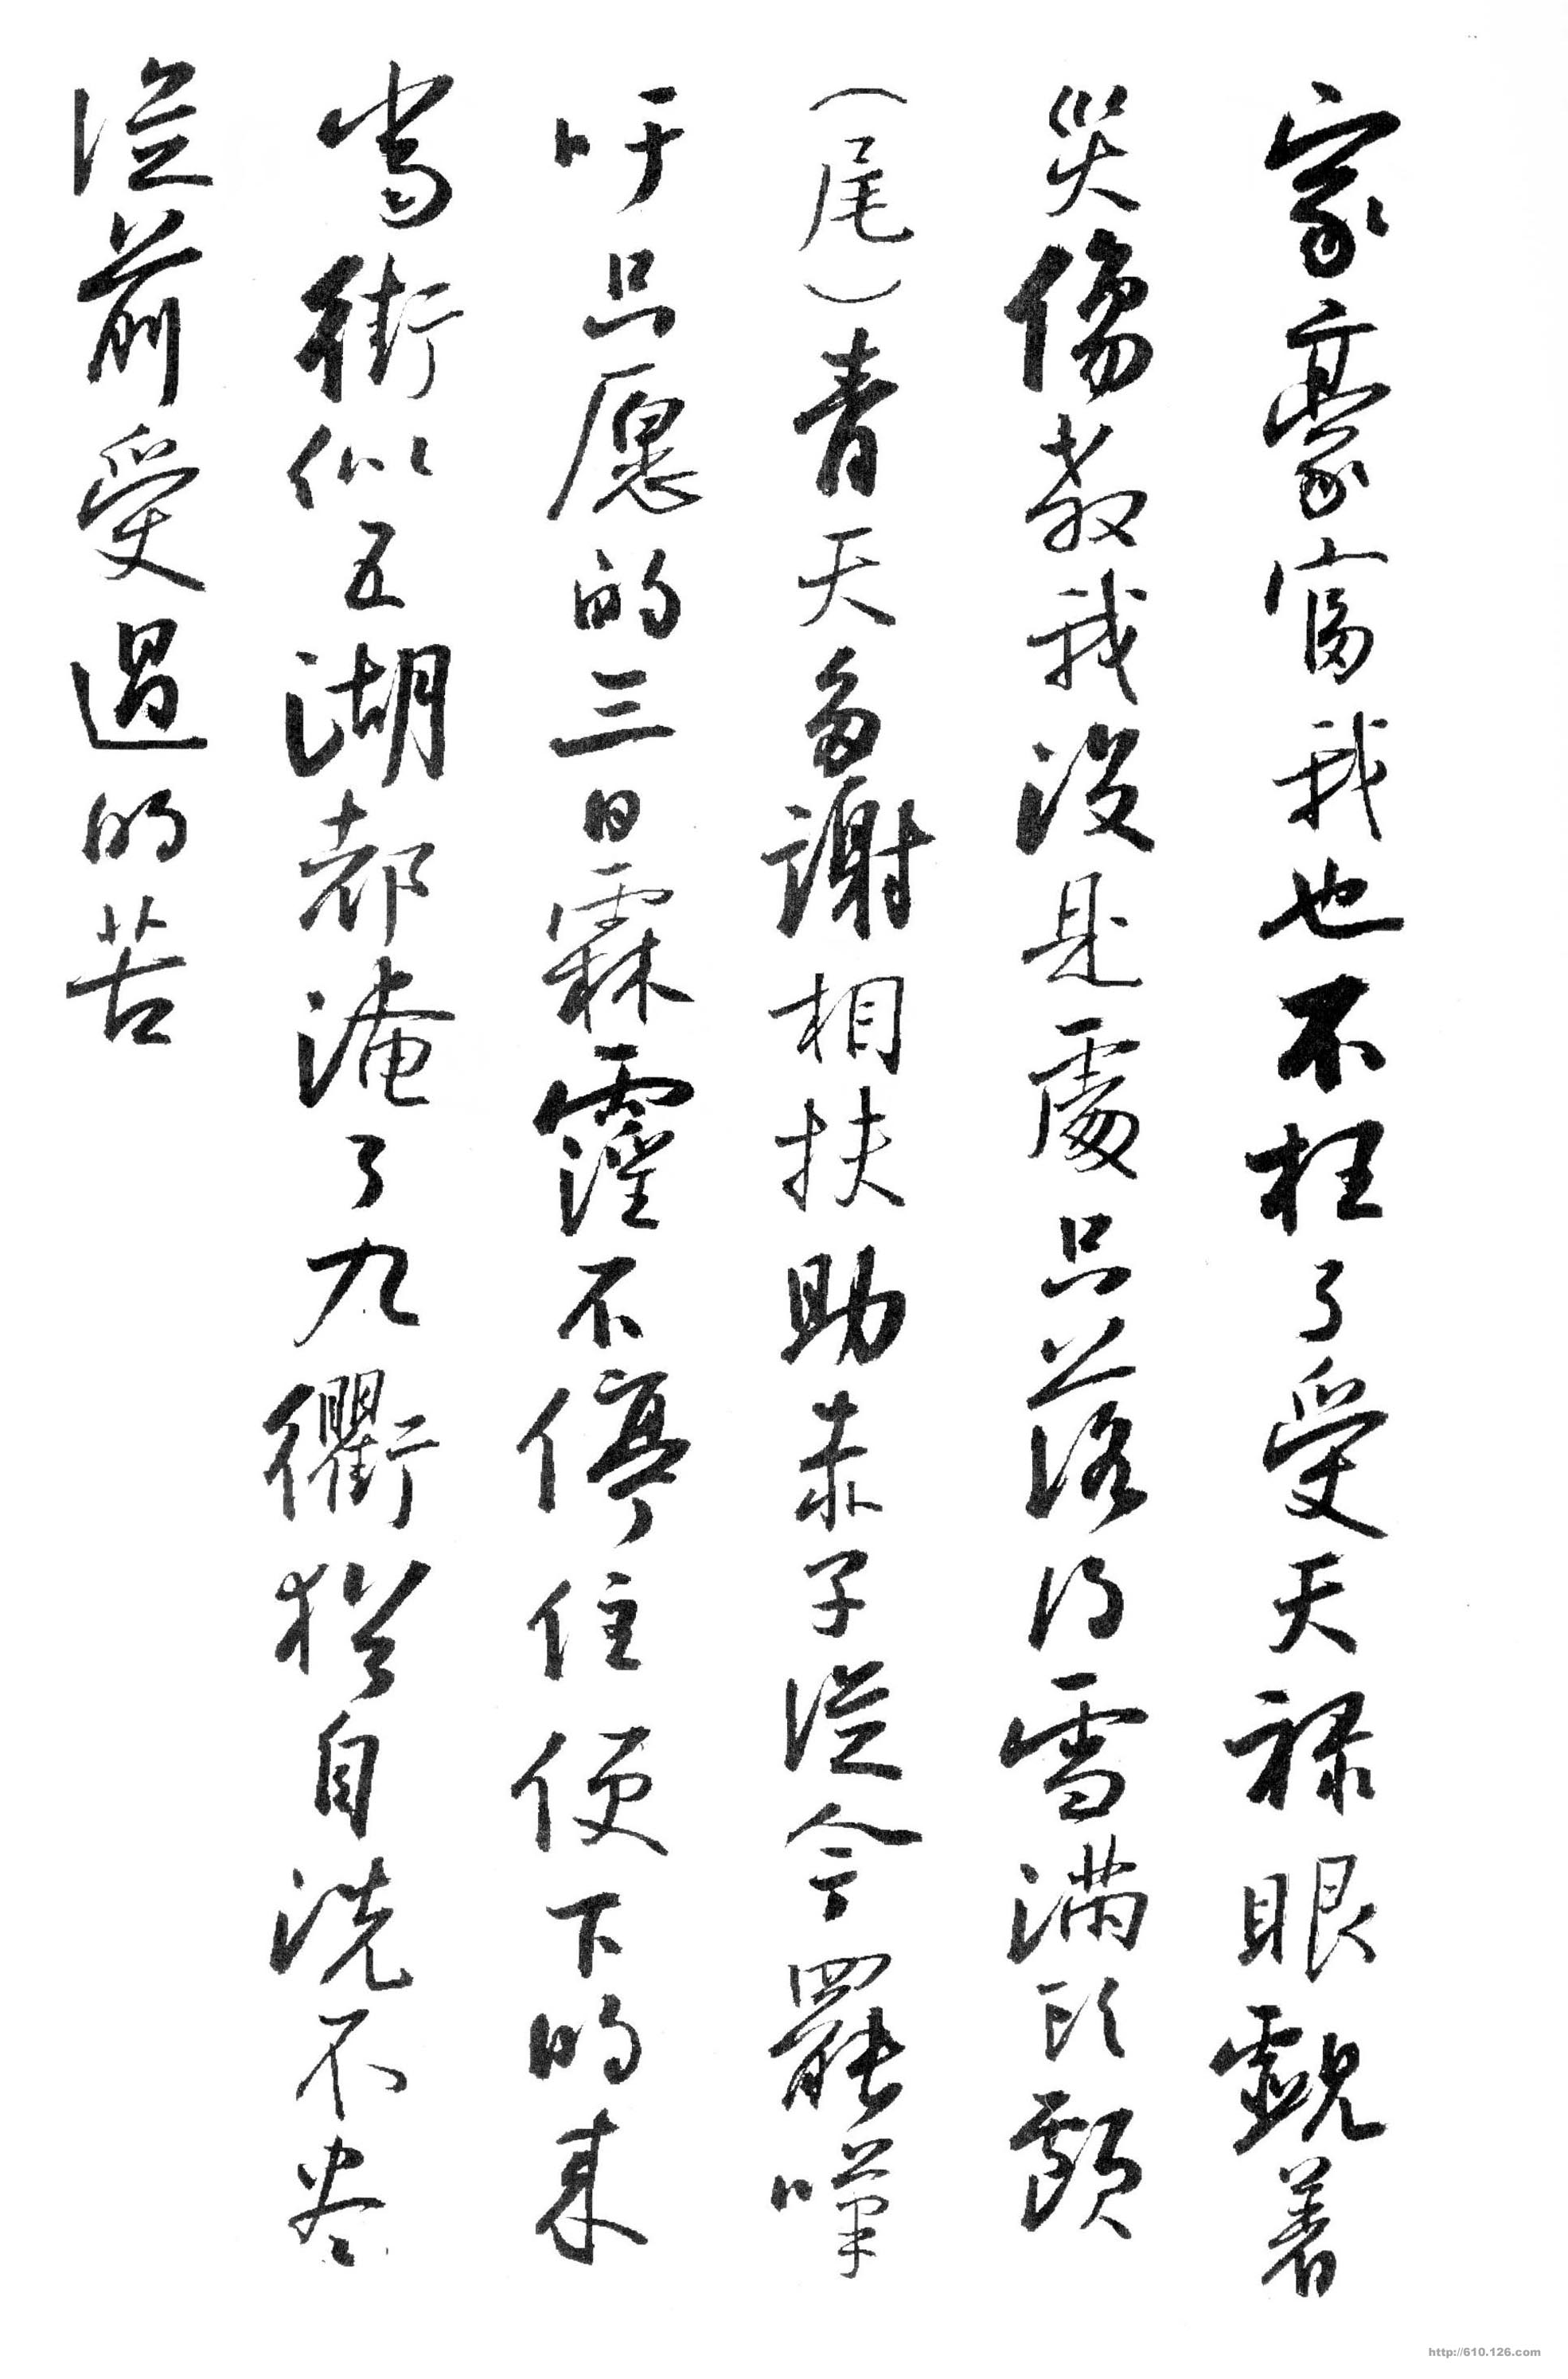 家豪富我也不枉了受天禄眼覷着
災傷教我没是處只落得雪满头顱
（尾）青天多謝相扶助赤子從今罷嘆
吁只愿的三日霖霪不停住便下的来
當街似五湖都淹了九衢猶自洗不尽
從前受過的苦
http://610.126.com